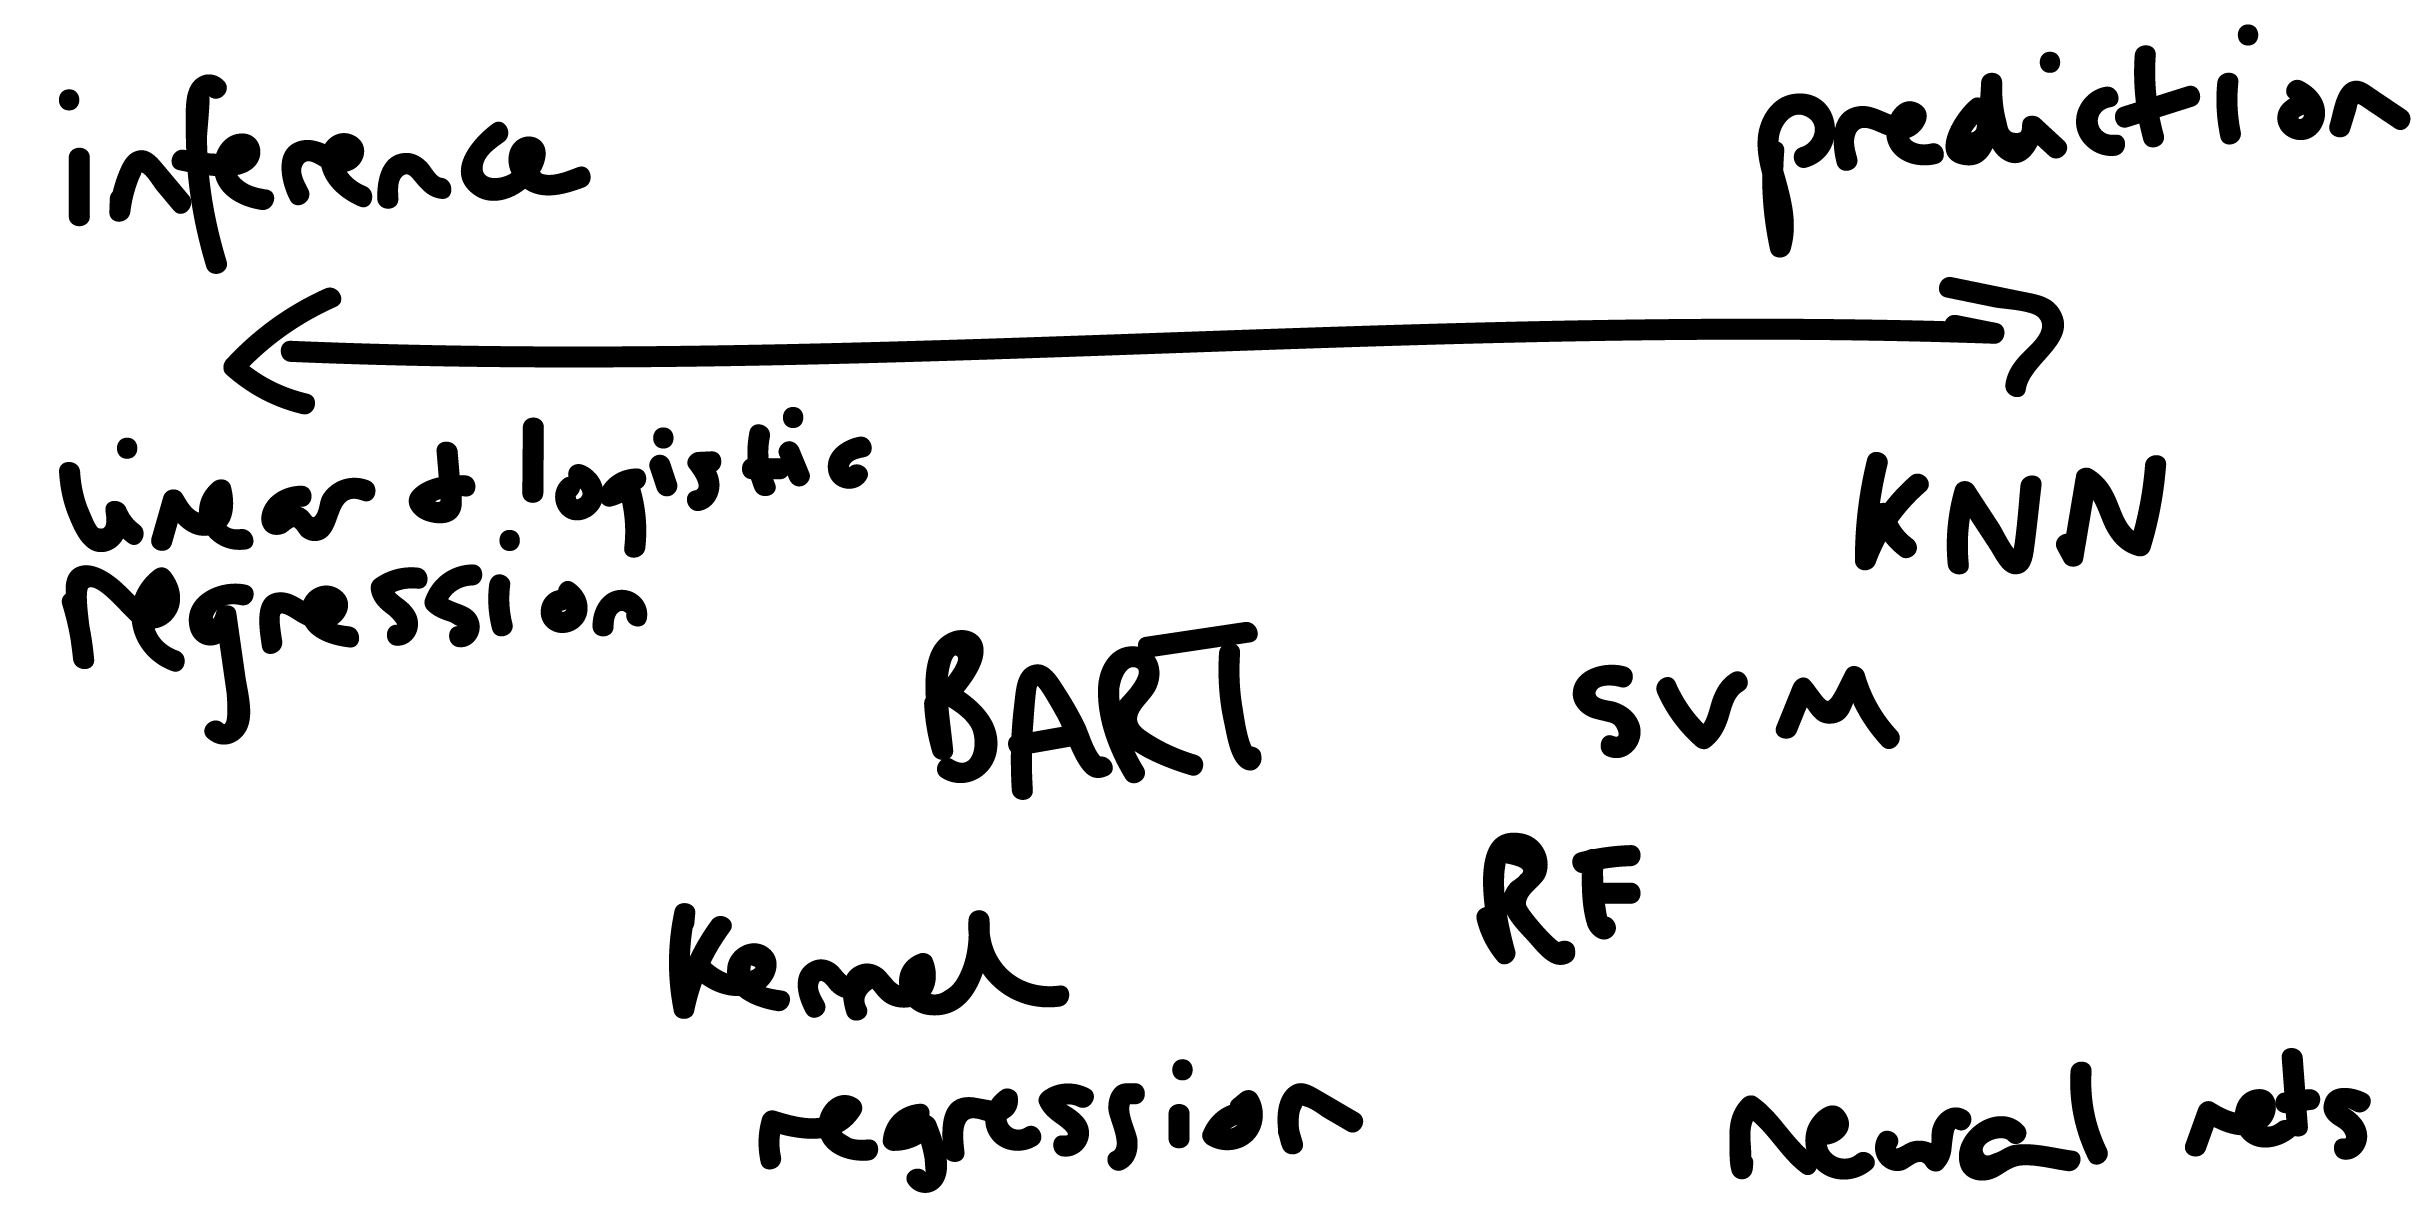 inference
prediction
linear & logistic
regression
KNN
BART
SVM
RF
Kernel
regression
Neural nets